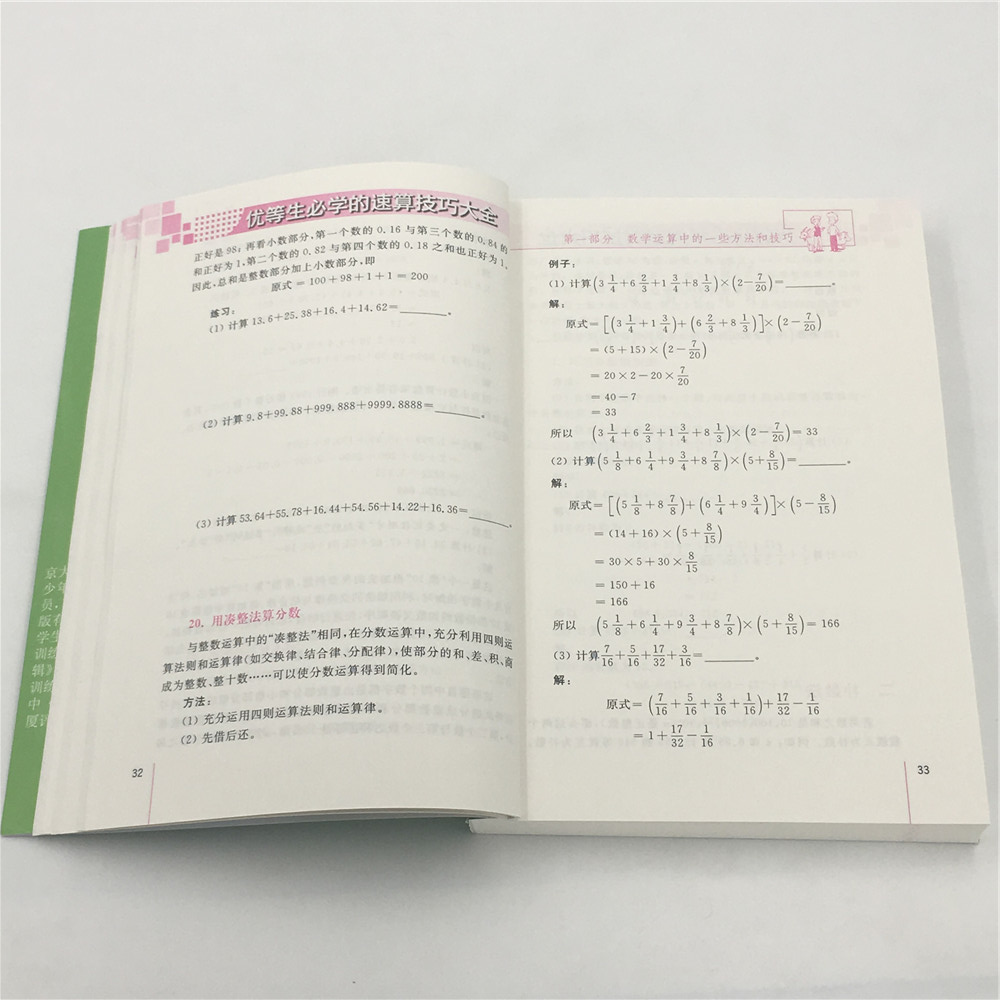 优等生必学的速算技巧大全
正好是98;再看小数部分,第一个数的0.16与第三个数的0.84的
和正好为1,第二个数的0.82与第四个数的0.18之和也正好为1。
因此,总和是整数部分加上小数部分,即
原式=100+98+1+1=200
练习:
(1) 计算13.6+25.38+16.4+14.62=______。
(2) 计算9.8+99.88+999.888+9999.8888=______。
(3) 计算53.64+55.78+16.44+54.56+14.22+16.36=______。
20. 用凑整法算分数
与整数运算中的“凑整法”相同,在分数运算中,充分利用四则运
算法则和运算律(如交换律、结合律、分配律),使部分的和、差、积、商
成为整数、整十数……可以使分数运算得到简化。
方法:
(1) 充分运用四则运算法则和运算律。
(2) 先借后还。
32
京大
少年
员,
版
学生
训练
辑》
训
中
厦
第一部分 数学运算中的一些方法和技巧
例子:
(1) 计算(3 1/4+6 2/3+1 3/4+8 1/3)×(2-7/20)=______。
解:
原式=[(3 1/4+1 3/4)+(6 2/3+8 1/3)]×(2-7/20)
=(5+15)×(2-7/20)
=20×2-20×7/20
=40-7
=33
所以 (3 1/4+6 2/3+1 3/4+8 1/3)×(2-7/20)=33
(2) 计算(5 1/8+6 1/4+9 3/4+8 7/8)×(5+8/15)=______。
解:
原式=[(5 1/8+8 7/8)+(6 1/4+9 3/4)]×(5-8/15)
=(14+16)×(5+8/15)
=30×5+30×8/15
=150+16
=166
所以 (5 1/8+6 1/4+9 3/4+8 7/8)×(5+8/15)=166
(3) 计算7/16+5/16+17/32+3/16=______。
解:
原式=(7/16+5/16+3/16+1/16)+17/32-1/16
=1+17/32-1/16
33